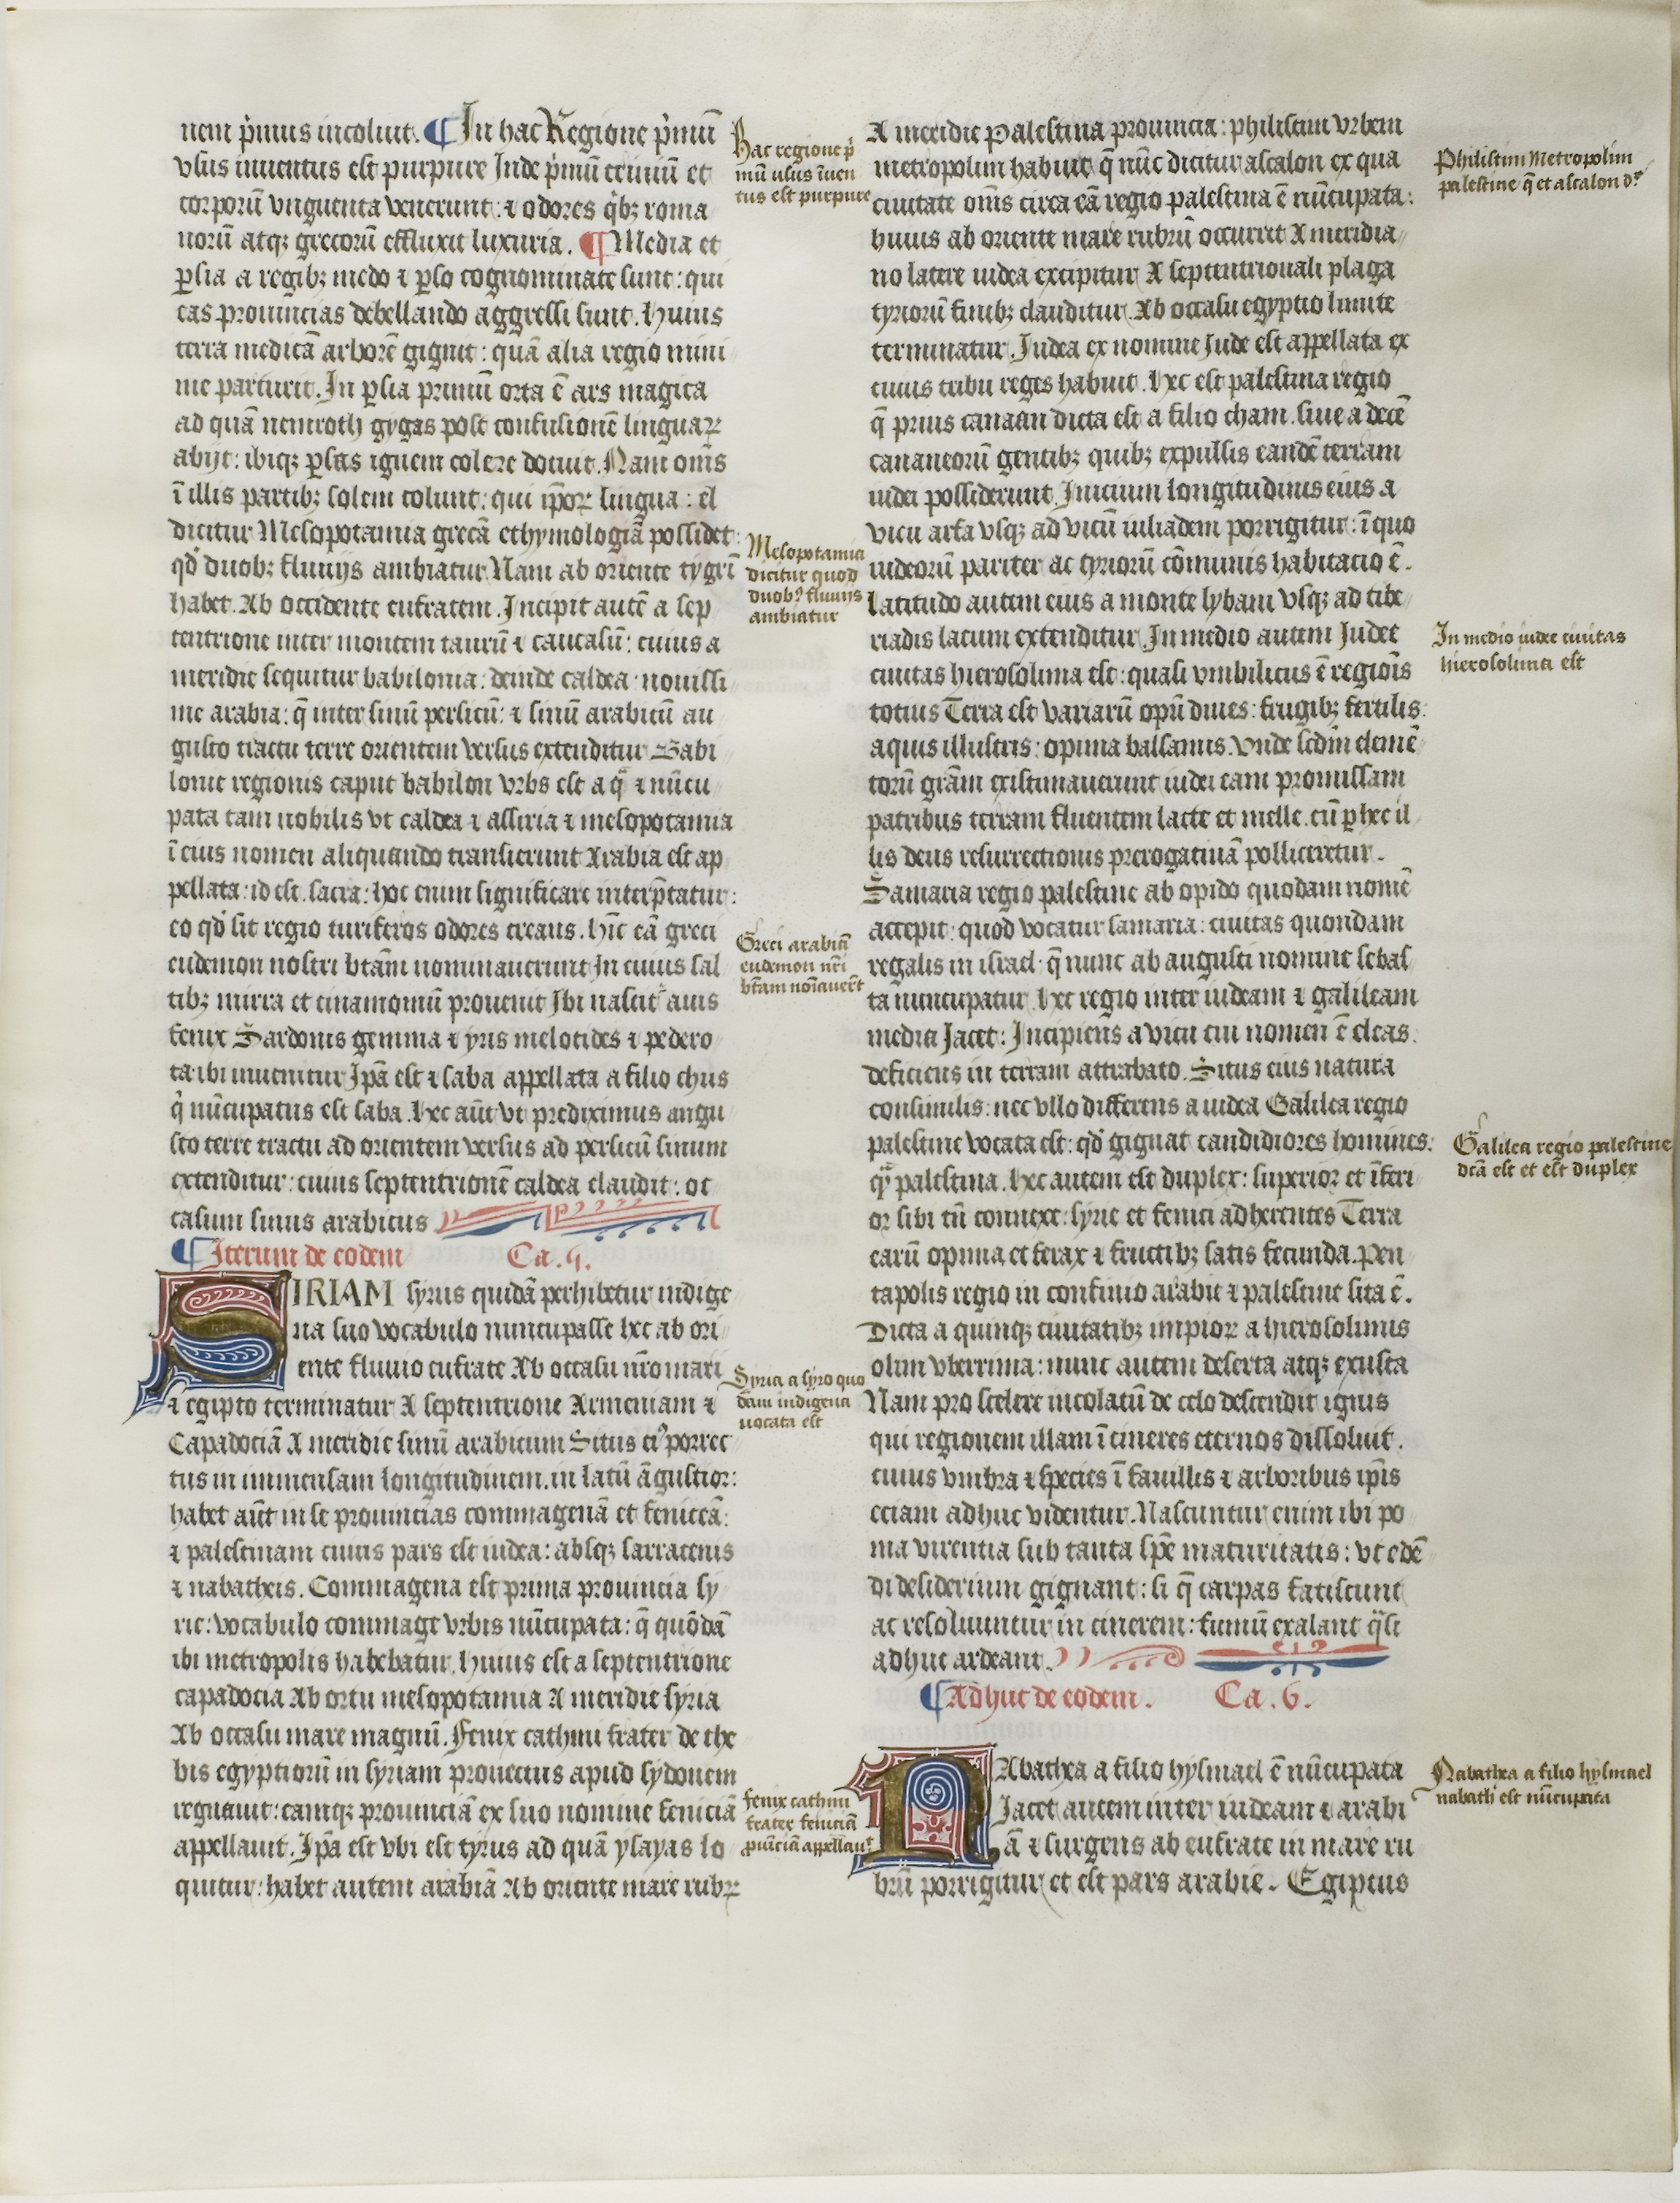 nem p̍mus incoluit. ¶ In hac Regione p̍mū
vsus inuentus est purpure Inde p̍mū criniū et
corporū vnguenta venerunt: ⁊ odores q̍bꝫ roma
norū atqꝫ grecorū effluxit luxuria. ¶ Media et
ꝑsia a regibꝫ medo ⁊ ꝑso cognominate sunt: qui
eas prouincias debellando aggressi sunt. Huius
terra medicā arborē gignit: quā alia regio mini
me parturit. In ꝑsia primū orta ē ars magica
ad quā nemroth gygas post confusionē linguaꝝ
abijt: ibiqꝫ ꝑsas ignem colere docuit. Nam oms̄
ī illis partibꝫ solem colunt: qui ip̄oꝝ lingua: el
dicitur Mesopotamia grecā ethymologiā possidet:
qd̓ duobꝫ fluuijs ambiatur Nam ab oriente tygrī
habet. Ab occidente eufratem. Incipit autē a sep
tentrione inter montem taurū ⁊ caucasū: cuius a
meridie sequitur babilonia: deinde caldea nouissi
me arabia: q̄ inter sinū persicū: ⁊ sinū arabicū au
gusto tractu terre orientem versus extenditur Babi
lonie regionis caput babilon vrbs est a qͣ ⁊ nūcu
pata tam nobilis vt caldea ⁊ assiria ⁊ mesopotamia
ī eius nomen aliquando transierunt Arabia est ap
pellata: id est. sacra: hoc enim significare interp̄tatur:
eo qd̓ sit regio turiferos odores creans. Hīc eā greci
eudemon nostri btām nominauerunt In cuius sal
tibꝫ mirra et cinamomū prouenit Ibi nascit᷑ auis
fenix Sardonis gemma ⁊ yris melotides ⁊ pedero
ta ibi inuenitur Ipā est ⁊ saba appellata a filio chus
q̍ nūcupatus est saba. Hec aūt vt prediximus angu
sto terre tractu ad orientem versus ad persicū sinum
extenditur: cuius septentrionē caldea claudit: oc
casum sinus arabicus
¶ Iterum de eodem Ca. 5.
SIRIAM syrus quidā perhibetur indige
na suo vocabulo nuncupasse hec ab ori
ente fluuio eufrate Ab occasu nr̄o mari
⁊ egipto terminatur A septentrione Armeniam ⁊
Capadociā A meridie sinū arabicum Situs eiꝰ porrec
tus in immensam longitudinem. in latū āgustior:
habet aūt in se prouincias commagenā et feniceā:
⁊ palestinam cuius pars est iudea: absqꝫ sarracenis
⁊ nabatheis. Commagena est prima prouincia sy
rie: vocabulo commage vrbis nūcupata: q̄ quōdā
ibi metropolis habebatur. Huius est a septentrione
capadocia Ab ortu mesopotamia A meridie syria
Ab occasu mare magnū. Fenix cathmi frater de the
bis egyptiorū in syriam prouectus apud sydonem
regnauit: eamqꝫ prouinciā ex suo nomine feniciā
appellauit. Ipā est vbi est tyrus ad quā ysayas lo
quitur: habet autem arabiā Ab oriente mare rubꝝ
Hac regione p̍
mū usus īuen
tus est purpure
Mesopotamia
dicitur quod
duobꝰ fluuijs
ambiatur
Greci arabiā
eudemon nr̄i
btām noīauer̄t
Syria a syro quo
dam indigena
uocata est
fenix cathmi
frater feniciā
ꝓuīciā appellauᷓt
A meridie Palestina prouincia: philistim vrbem
metropolim habuit q̄ nūc dicitur ascalon ex qua
ciuitate oms̄ circa eā regio palestina ē nūcupata:
huius ab oriente mare rubrū occurrit A meridia
no latere iudea excipitur A septentrionali plaga
tyriorū finibꝫ clauditur. Ab occasu egyptio limite
terminatur. Iudea ex nomine Iude est appellata ex
cuius tribu reges habuit. Hec est palestina regio
q̄ prius canaan dicta est a filio cham. siue a decē
cananeorū gentibꝫ quibꝫ expulsis eandē terram
iudei possiderunt. Inicium longitudinis eius a
vicu arfa vsqꝫ ad vicū iuliadem porrigitur: ī quo
iudeorū pariter ac tyriorū cōmunis habitacio ē.
Latitudo autem eius a monte lybani vsqꝫ ad tibe
riadis lacum extenditur. In medio autem Iudee
ciuitas hierosolima est: quasi vmbilicus ē regiois̄
totius Terra est variarū opū diues: frugibꝫ fertilis:
aquis illustris: opima balsamis. Vnde scdm̄ elemē
torū grām existimauerunt iudei eam promissam
patribus terram fluentem lacte et melle. cū ꝑ hec il
lis deus resurrectionis prerogatiuā polliceretur.
Samaria regio palestine ab opido quodam nomē
accepit: quod vocatur samaria: ciuitas quondam
regalis in israel: q̄ nunc ab augusti nomine sebas
ta nuncupatur. Hec regio inter iudeam ⁊ galileam
media Iacet: Incipiens a vicu cui nomen ē eleas:
deficiens in terram attrabato. Situs eius natura
consimilis: nec vllo differens a iudea Galilea regio
palestine vocata est: qd̓ gignat candidiores homines:
qͣ palestina. Hec autem est duplex: superior et īferi
or sibi tn̄ connexe: syrie et fenici adherentes Terra
earū opima et ferax ⁊ fructibꝫ satis fecunda. Pen
tapolis regio in confinio arabie ⁊ palestine sita ē.
Dicta a quinqꝫ ciuitatibꝫ impioꝝ a hierosolimis
olim vberrima: nunc autem deserta atqꝫ exusta
Nam pro scelere incolatū de celo descendit ignis
qui regionem illam ī cineres eternos dissoluit.
cuius vmbra ⁊ species ī fauillis ⁊ arboribus ip̄is
eciam adhuc videntur. Nascuntur enim ibi po
ma virentia sub tanta spē maturitatis: vt edē
di desiderium gignant: si q̄ carpas fatiscunt
ac resoluuntur in cinerem: fumū exalant qͣsi
adhuc ardeant.
¶ Adhuc de eodem. Ca. 6.
NAbathea a filio hysmael ē nūcupata
Iacet autem inter iudeam ⁊ arabi
ā ⁊ surgens ab eufrate in mare ru
brū porrigitur et est pars arabie. Egiptus
Philistim Metropolim
palestine q̄ et ascalon dr̄
In medio iudee ciuitas
hierosolima est
Galilea regio palestine
dcā est et est duplex
Nabathea a filio hysmael
nabath est nūcupata